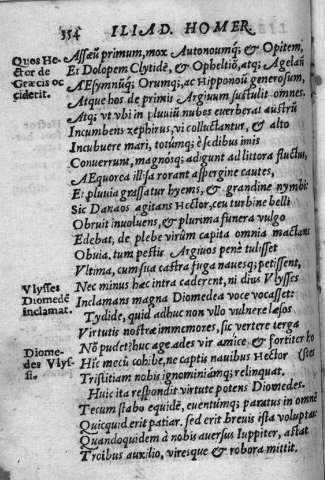 354 ILIAD. HOMER.
Quos He-
ctor de
Græcis oc
ciderit.
Assæũ primum, mox Autonoumq; & Opitem,
Et Dolopem Clytidẽ, & Opheltiõ, atq; Agelaũ
Æsymnũq; Orumq; ac Hipponoũ generosum,
Atque hos de primis Argiuum sustulit omnes.
Atq; vt vbi in pluuiũ nubes euerberat austrũ
Incumbens zephirus, vi colluctantur, & alto
Incubuere mari, totumq; è sedibus imis
Conuerrunt, magnosq; adigunt ad littora fluctus,
AEquorea illisa rorant aspergine cautes,
Et pluuia grassatur hyems, & grandine nymbi:
Sic Danaos agitans Hector, ceu turbine belli
Obruit inuoluens, & plurima funera vulgo
Edebat, de plebe virûm capita omnia mactans
Obuia. tum pestis Argiuos penè tulisset
Vltima, cumq; sua castra fuga nauesq; petissent,
Vlysses
Diomedẽ
inclamat.
Nec minus hac intra caderent, ni dius Vlysses
Inclamans magna Diomedea voce vocasset:
Tydide, quid adhuc non vllo vulnere læsos
Virtutis nostræ immemores, sic vertere terga
Diome-
des Vlys-
si.
Nõ pudet? huc age ades vir amice & fortiter ho
Híc mecũ cohibe, ne captis nauibus Hector (stes
Tristitiam nobis ignominiamq; relinquat.
Huic ita respondit virtute potens Diomedes.
Tecum stabo equidẽ, euentúmq; paratus in omnẽ
Quicquid erit patiar. sed erit breuis ista voluptas
Quandoquidem à nobis auersus Iuppiter, astat
Troibus auxilio, viresque & robora mittit.